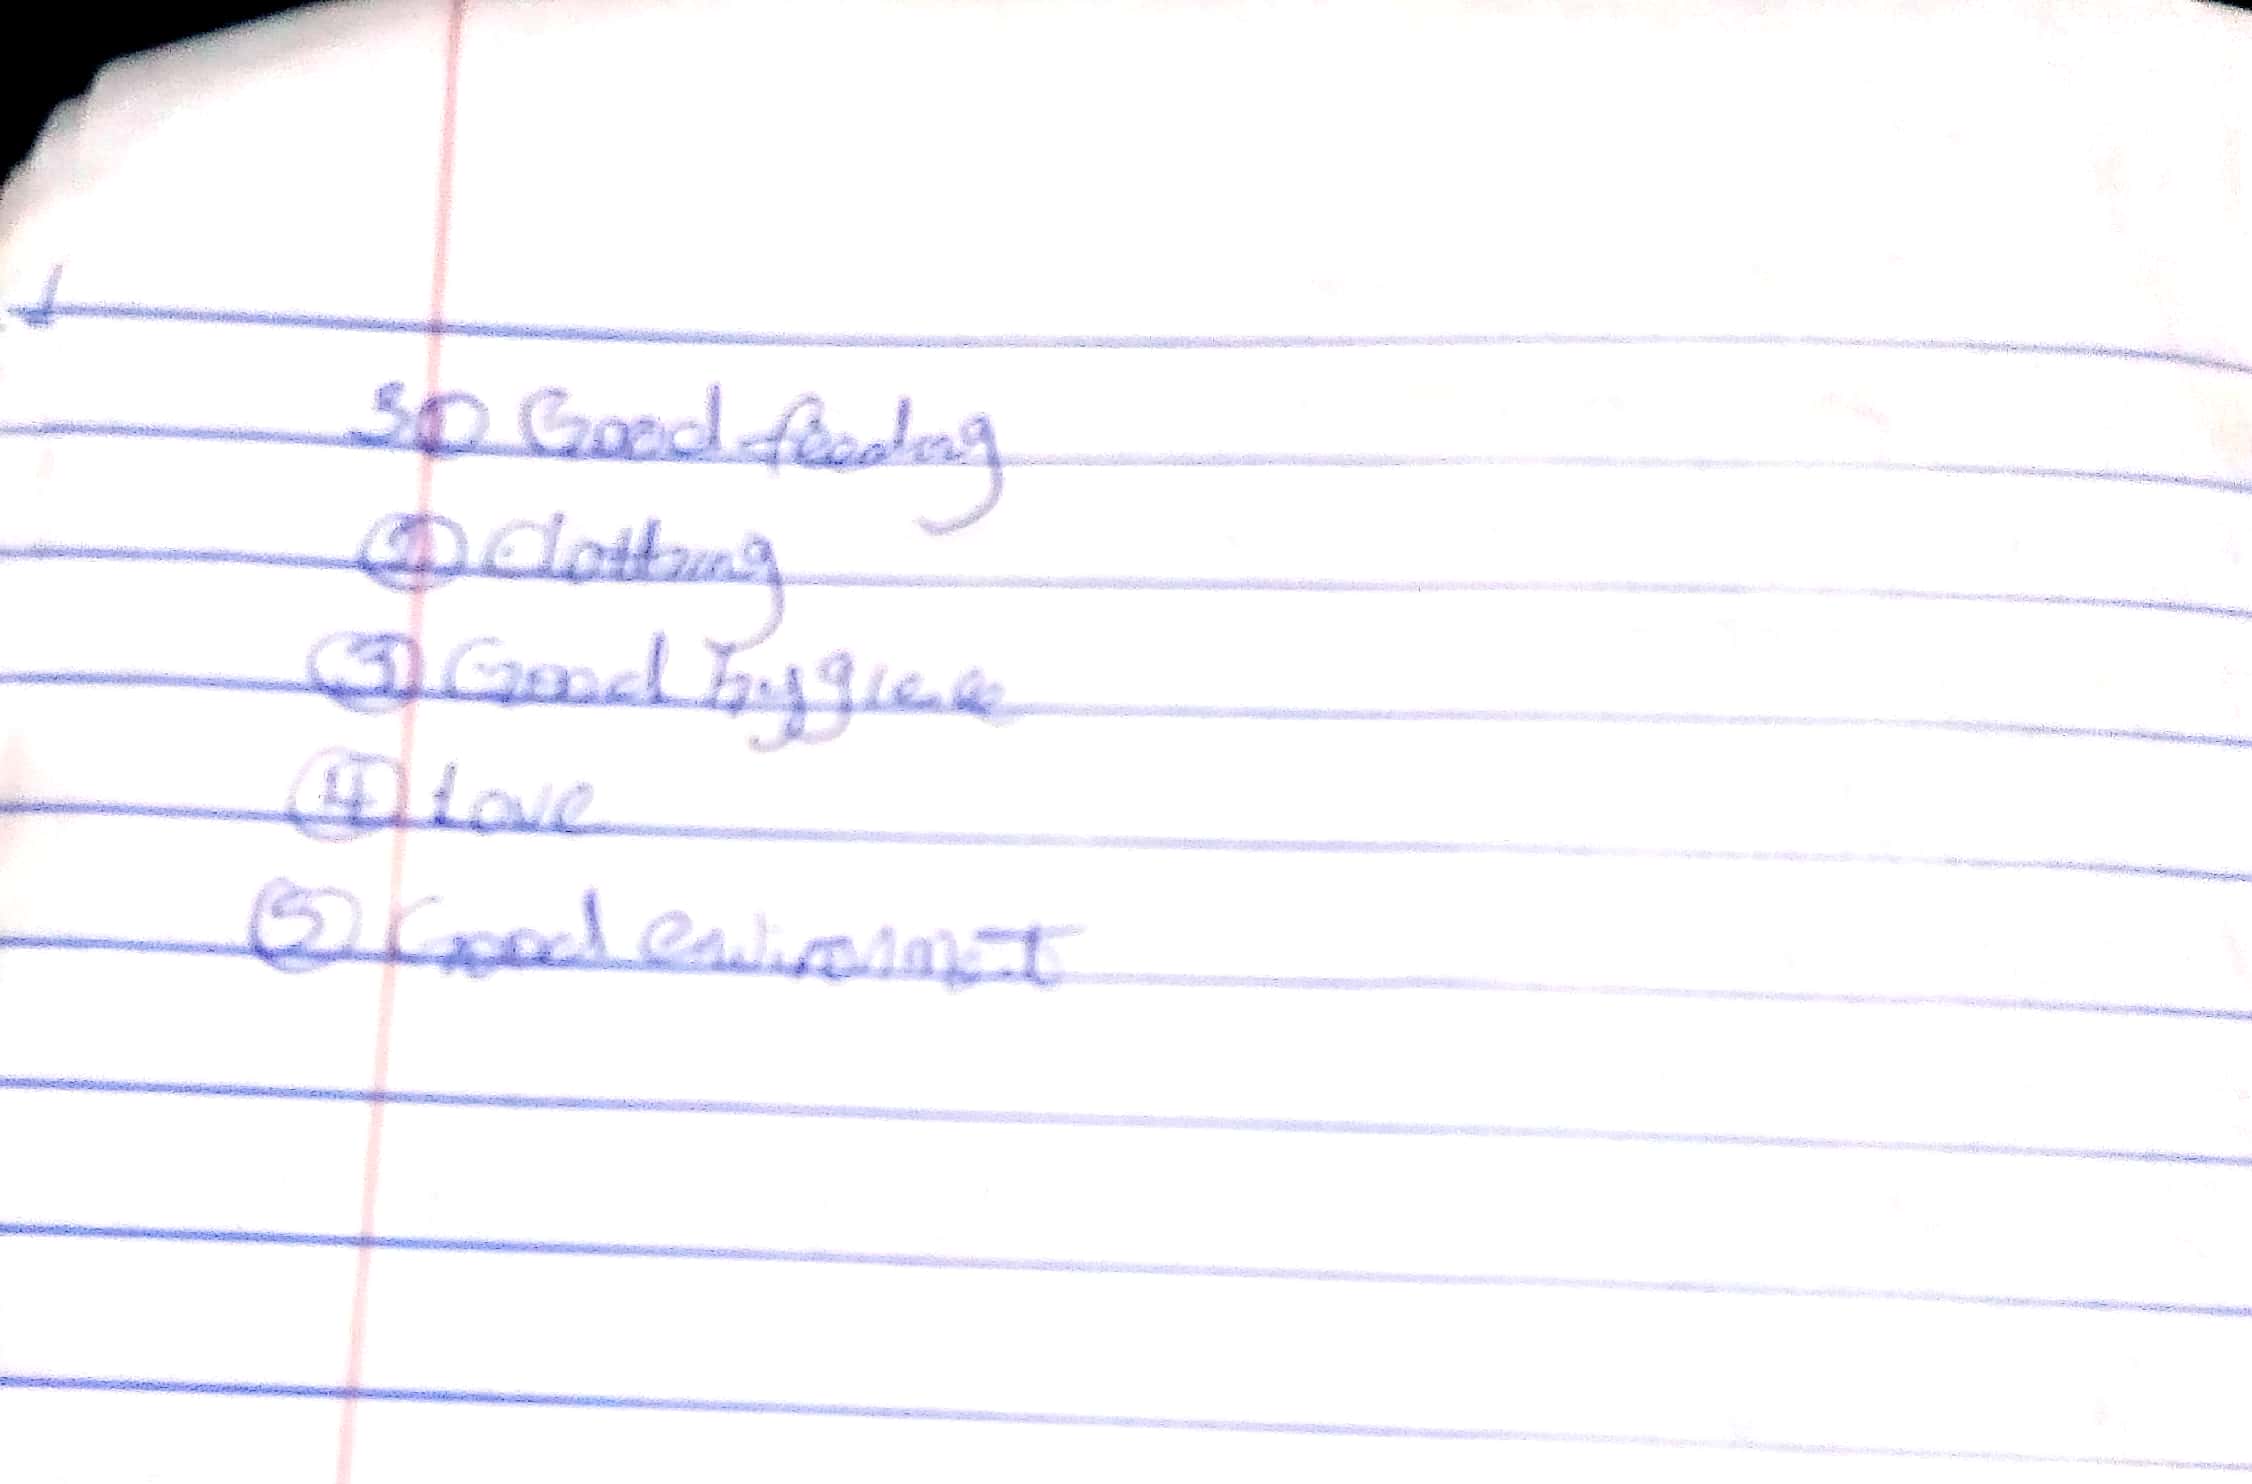 3① Good feeding
② Clothing
③ Good hygiene
④ Love
⑤ Good enviroment